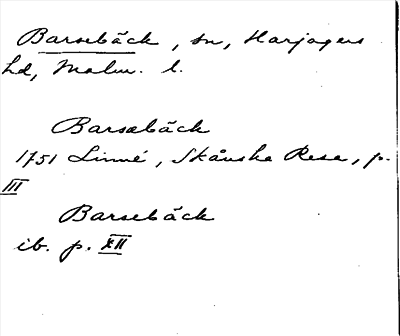 Barsebäck, sn, Harjagers
hd, Malm. l.
Barsebäck
1751 Linné, Skånska Resa, p.
III
Barsebäck
ib. p. XII